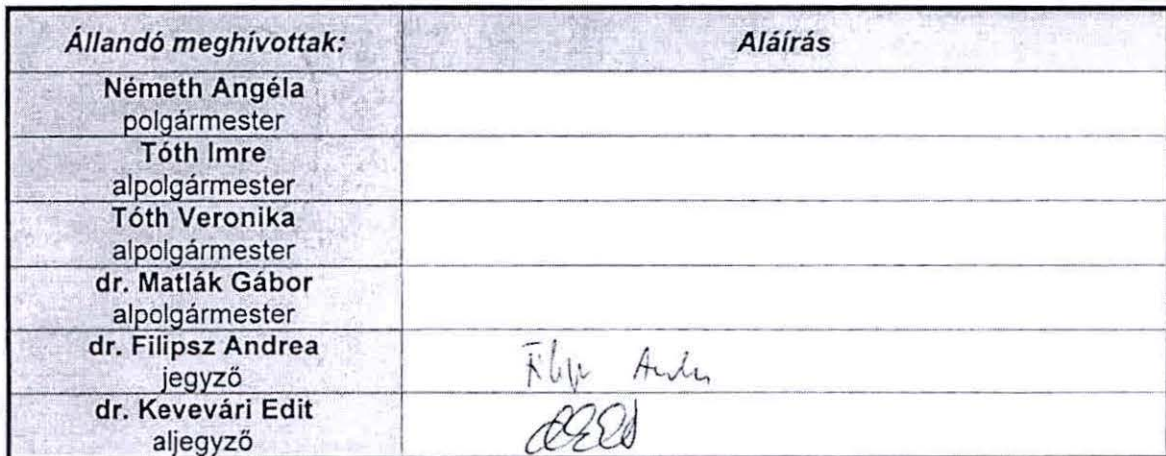 Állandó meghívottak: Aláírás
Németh Angéla
polgármester
Tóth Imre
alpolgármester
Tóth Veronika
alpolgármester
dr. Matlák Gábor
alpolgármester
dr. Filipsz Andrea
jegyző
dr. Kevevári Edit
aljegyző